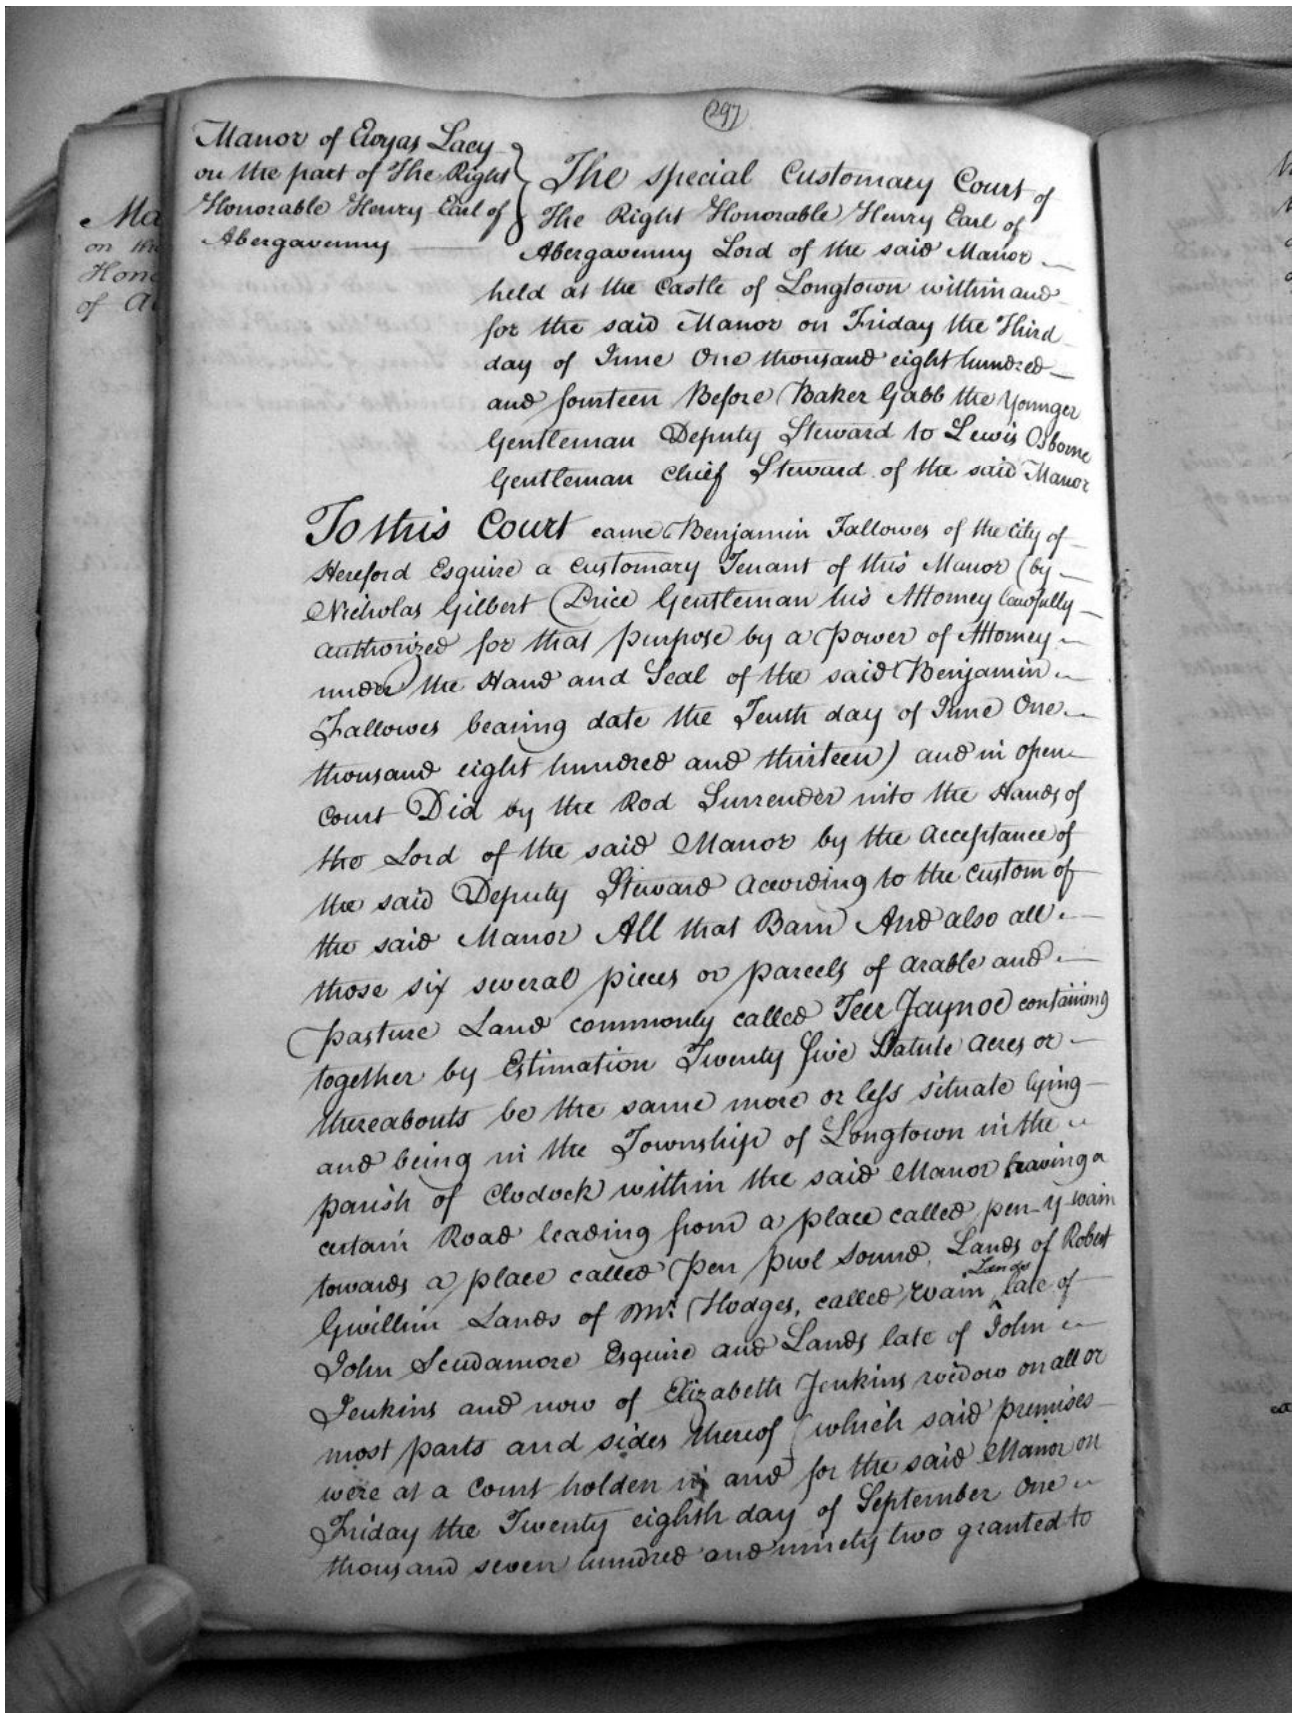 297
Manor of Ewyas Lacy
on the part of The Right
Honorable Henry Earl of
Abergavenny
The special Customary Court of
The Right Honorable Henry Earl of
Abergavenny Lord of the said Manor
held at the Castle of Longtown within and
for the said Manor on Friday the Third
day of June One thousand eight hundred
and fourteen Before Baker Gabb the Younger
Gentleman Deputy Steward to Lewis Osborne
Gentleman Chief Steward of the said Manor
To this Court came Benjamin Fallowes of the City of
Hereford Esquire a Customary Tenant of this Manor (by
Nicholas Gilbert Price Gentleman his Attorney lawfully
authorized for that purpose by a power of Attorney
under the Hand and Seal of the said Benjamin
Fallowes bearing date the Tenth day of June One
thousand eight hundred and thirteen) and in open
Court Did by the Rod Surrender into the Hands of
the Lord of the said Manor by the Acceptance of
the said Deputy Steward according to the custom of
the said Manor All that Barn And also all
those six several pieces or parcels of arable and
pasture Land commonly called Teer Jaynoe containing
together by Estimation Twenty five Statute Acres or
thereabouts be the same more or less situate lying
and being in the Township of Longtown in the
parish of Clodock within the said Manor having a
certain Road leading from a place called pen-y-wain
towards a place called Pen pwl sound, Lands of Robert
Gwillim Lands of Mr. Hodges, called Wain Lands late of
John Scudamore Esquire and Lands late of John
Jenkins and now of Elizabeth Jenkins widow on all or
most parts and sides thereof (which said premises
were at a Court holden in and for the said Manor on
Friday the Twenty eighth day of September One
thousand seven hundred and ninety two granted to
Ma
on the
Hono